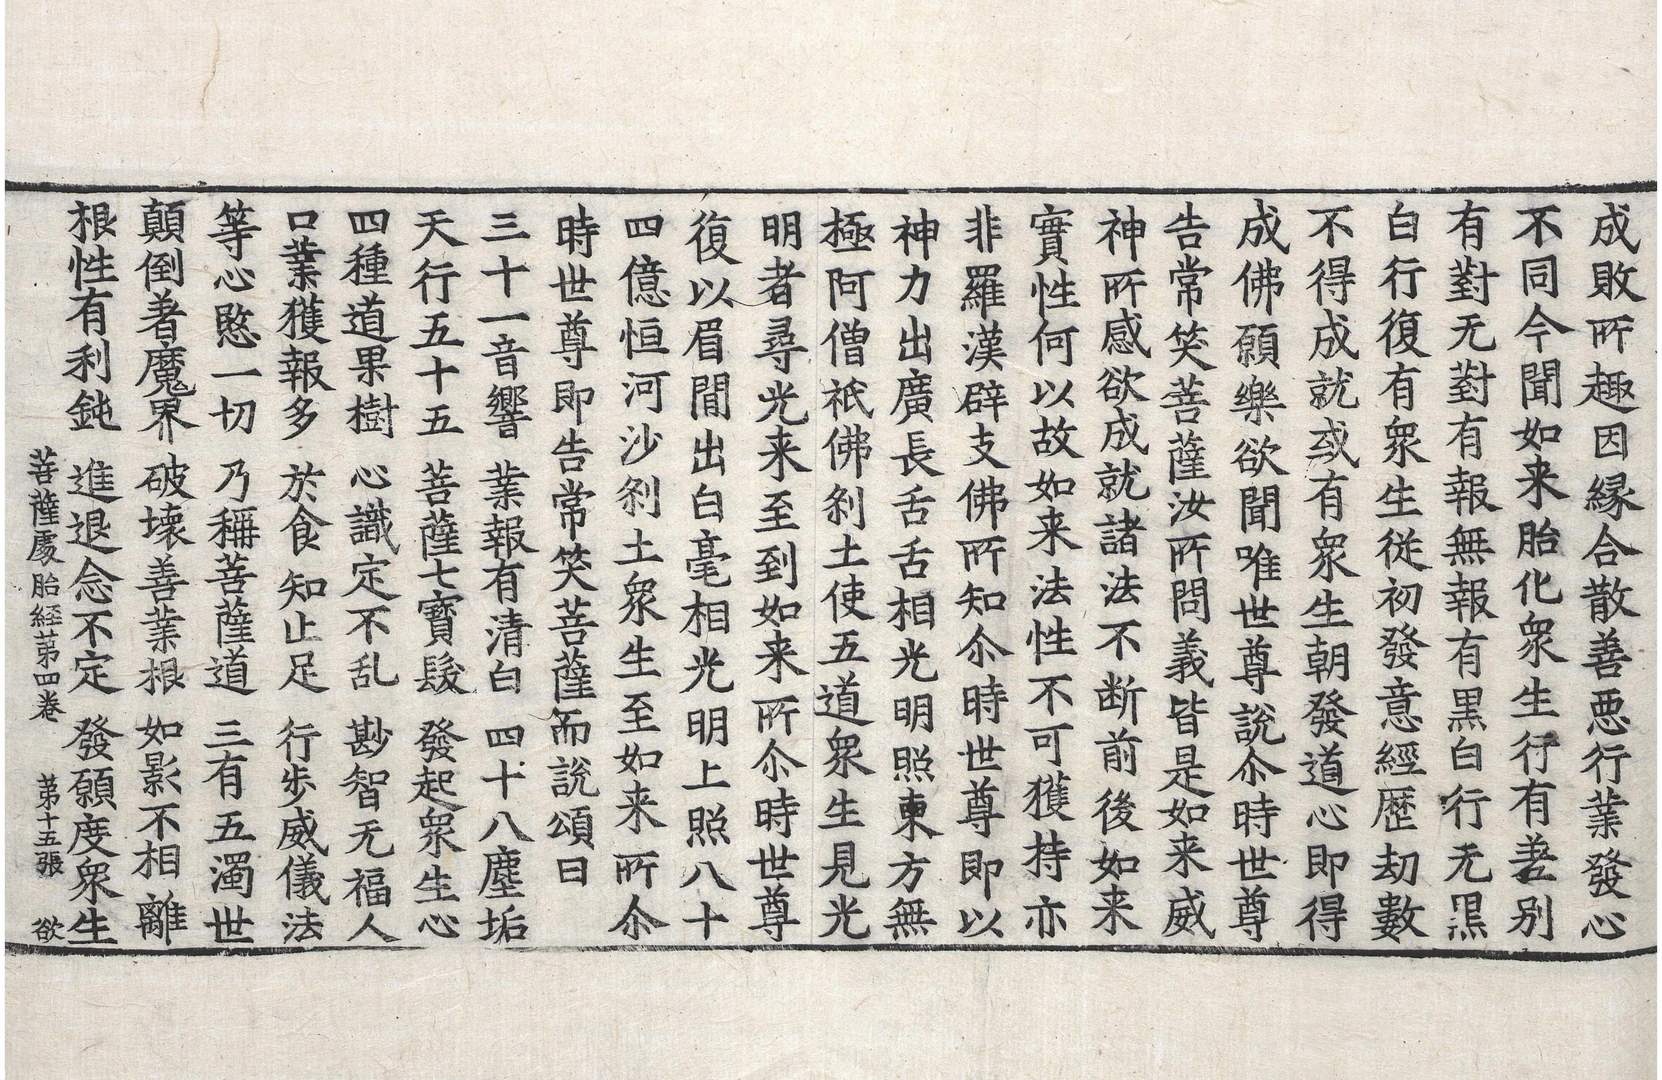 成敗所趣因緣合散善惡行業發心
不同今聞如来胎化衆生行有善别
有對无對有報無報有黒白行无黒
白行復有衆生從初發意經歷劫數
不得成就或有衆生朝發道心即得
成佛願樂欲聞唯世尊說尒時世尊
告常笑菩薩汝所問義皆是如来威
神所感欲成就諸法不斷前後如来
實性何以故如来法性不可獲持亦
非羅漢辟支佛所知尒時世尊即以
神力出廣長舌舌相光明照東方無
極阿僧祇佛刹土使五道衆生見光
明者尋光来至到如来所尒時世尊
復以眉間出白毫相光明上照八十
四億恒河沙刹土衆生至如来所尒
時世尊即告常笑菩薩而說頌曰
三十一音響 業報有清白 四十八塵垢
天行五十五 菩薩七寶髮 發起衆生心
四種道果樹 心識定不乱 尠智无福人
口業獲報多 於食知止足 行步威儀法
等心愍一切 乃稱菩薩道 三有五濁世
顛倒著魔界 破壞善業根 如影不相離
根性有利鈍 進退念不定 發願度衆生
菩薩處胎經苐四卷 苐十五張 欲